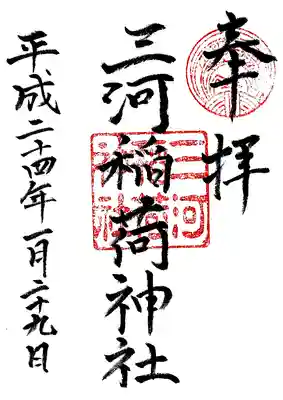 奉拝
三河稲荷神社
平成二十四年一月二十九日
三河稲荷神社